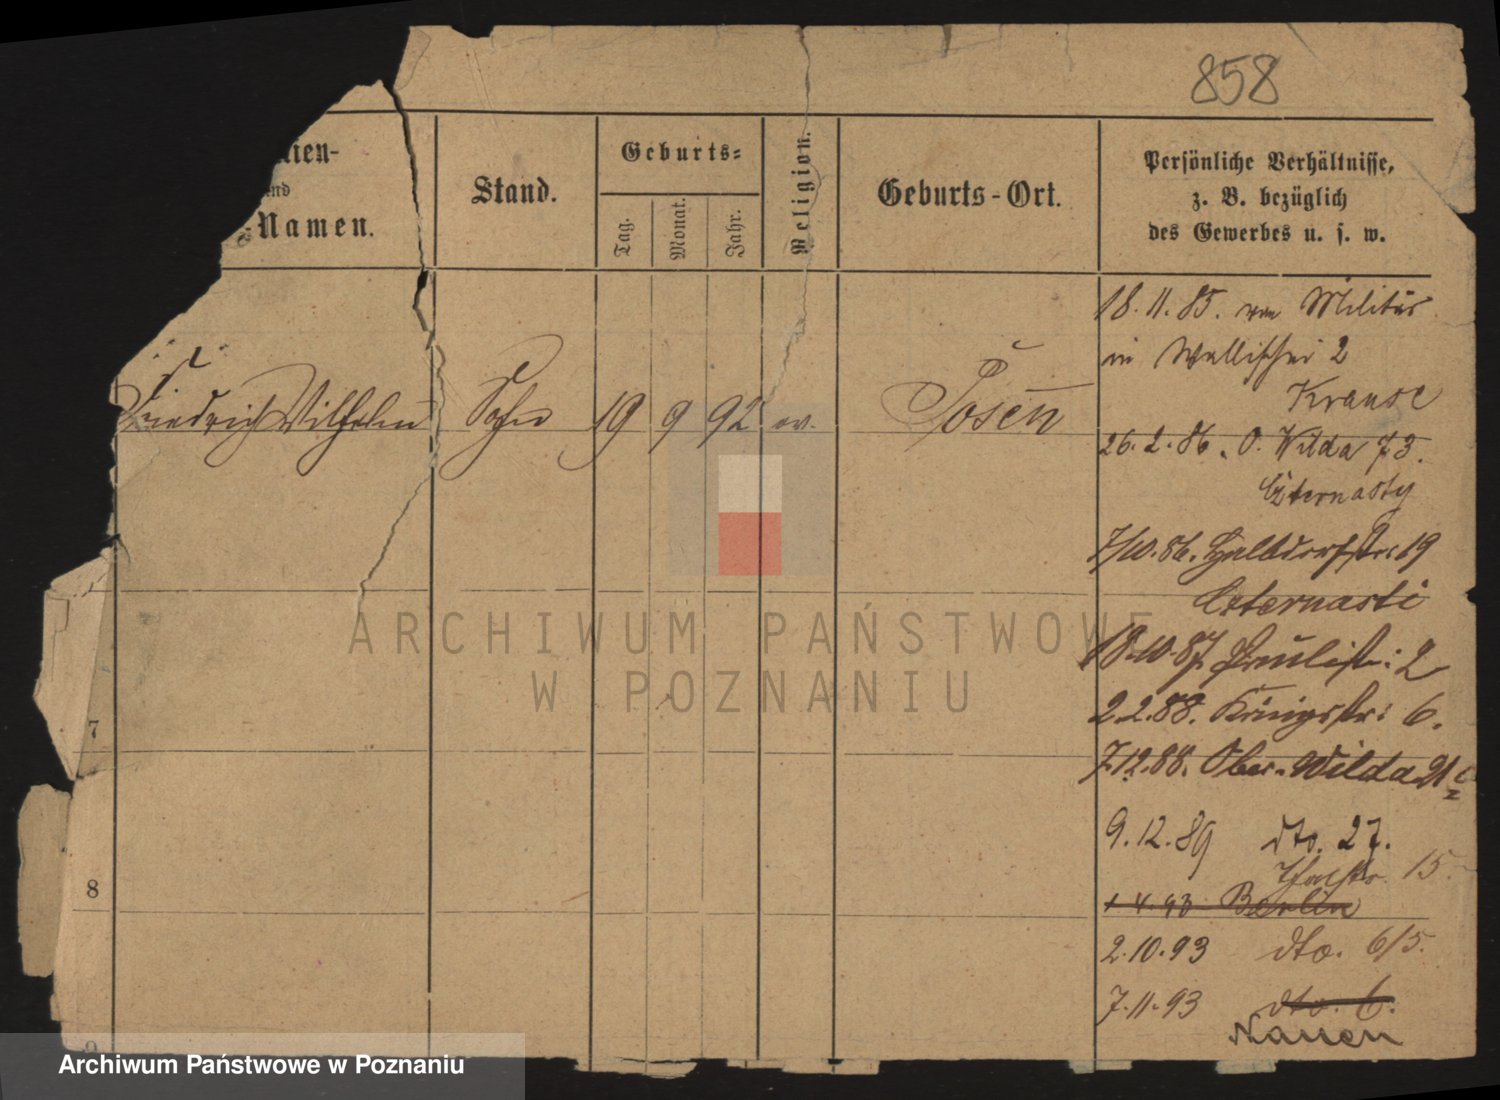 858
ien-
nd
-Namen.
Stand.
Geburts-
Tag.
Monat.
Jahr.
Religion.
Geburts-Ort.
Persönliche Verhältnisse,
z. B. bezüglich
des Gewerbes u. s. w.
Friedrich Wilhelm Sohn 19 9 92 ev. Posen
18. 11. 85. vom Militär
in Wallischei 2
Krause
26. 2. 86. O. Wilda 73.
Czternasty
7/10. 86. Halbdorfstr: 19
Czternasti
18.10.87. Paulistr: 2
2.2.88. Königsstr: 6.
7.12.88. Ober-Wilda 21
9.12.89 dto. 27.
15.
1 4. 93 Berlin
2.10.93 dto. 6/5.
7.11.93 dto. 6.
Nauen
7
8
9
ARCHIWUM PAŃSTWOWE
W POZNANIU
Archiwum Państwowe w Poznaniu